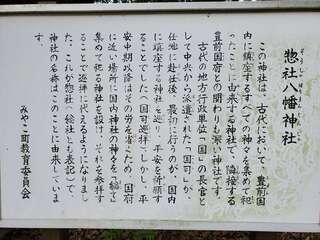 惣社八幡神社
そうしゃ はちまん じんじゃ
この神社は、古代において、豊前国
内に鎮座するすべての神々を集めて祀
ったことに由来する神社で、隣接する
豊前国府との関わりも深い神社です。
古代の地方行政単位「国」の長官と
して中央から派遣された「国司」が、
任地に赴任後、最初に行うのが、国内
に鎮座する神社を巡り、平安を祈願す
ることでした（国司巡拝）。しかし、平
安中期以降はその労を省くため、国府
に近い場所に国内神社の神々を「総て」
集めて祀る神社を設け、それを参拝す
ることで巡拝に代えるようになりまし
た。これが惣社（総社とも表記）で、
神社の名称はこのことに由来していま
す。
みやこ町教育委員会